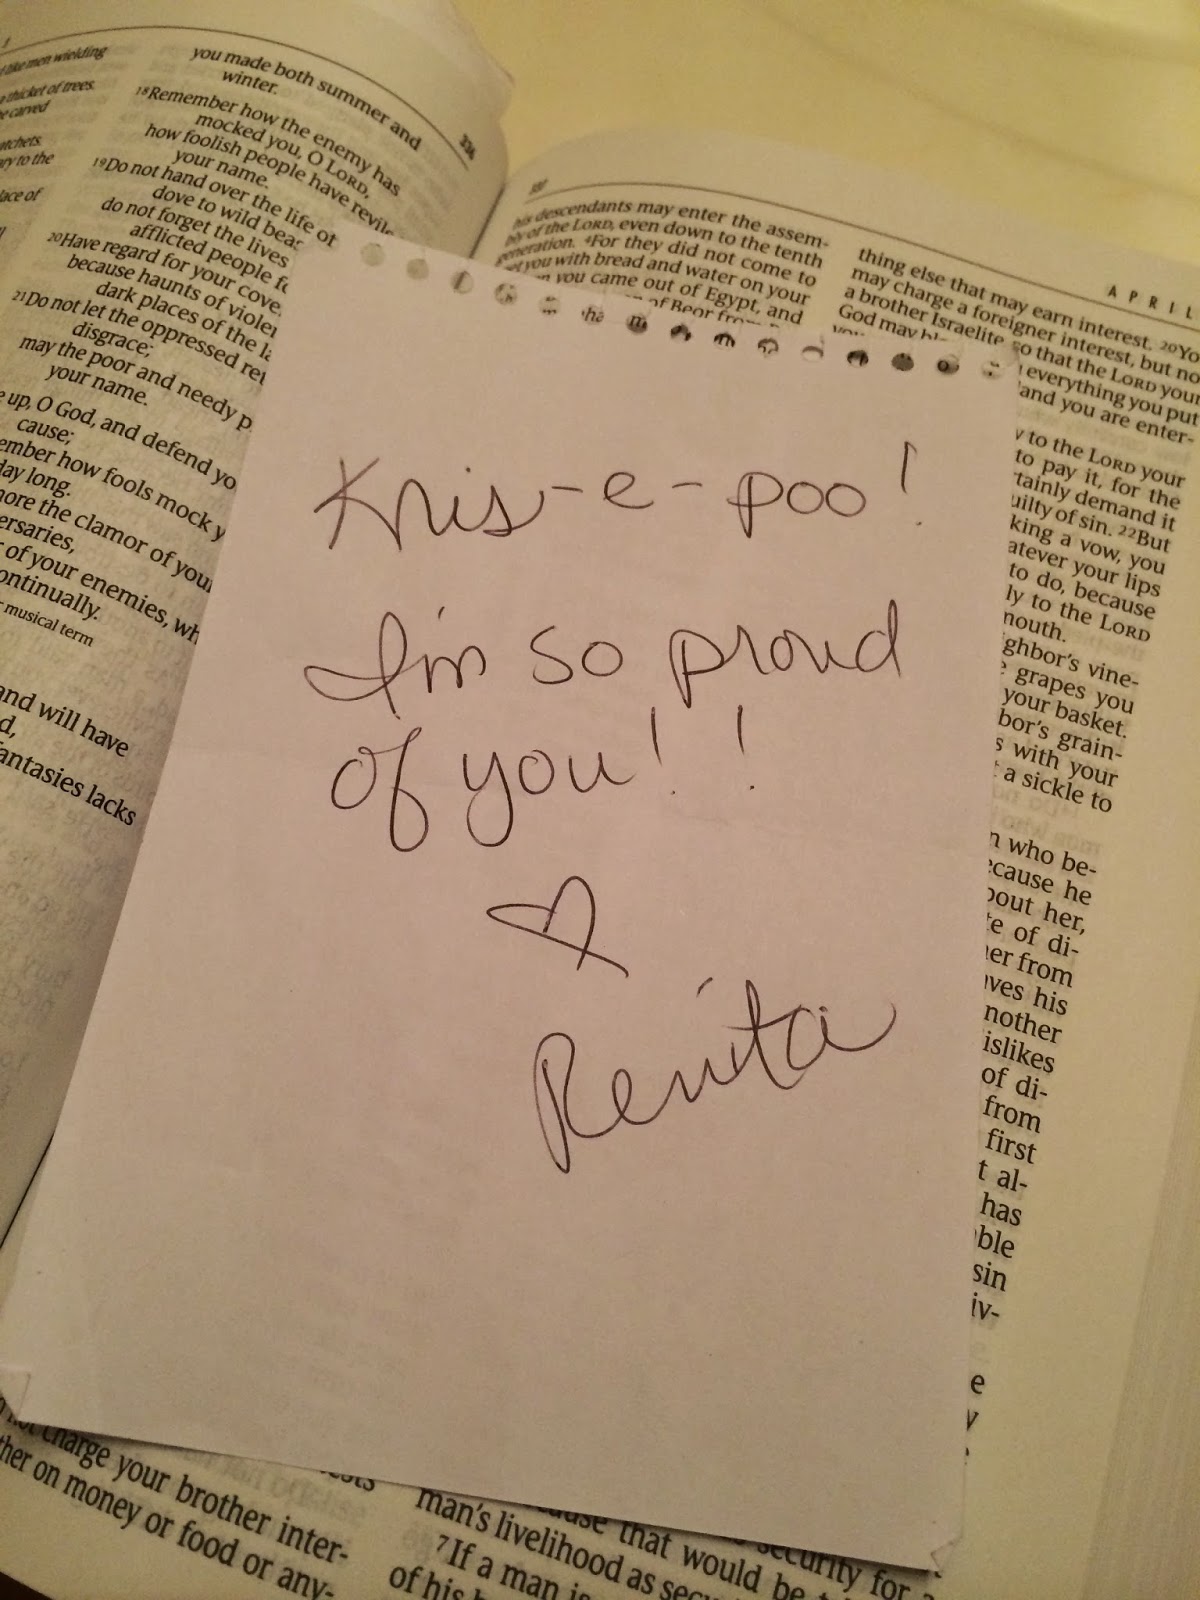 like men wielding
a thicket of trees.
carved
atchets.
ary to the
lace of
you made both summer and
winter.
18Remember how the enemy has
mocked you, O LORD,
how foolish people have revile
your name.
19Do not hand over the life of
dove to wild beas
do not forget the lives
afflicted people fo
20Have regard for your cove
because haunts of violen
dark places of the la
21Do not let the oppressed ret
disgrace;
may the poor and needy p
your name.
e up, O God, and defend yo
cause;
ember how fools mock y
day long.
nore the clamor of your
ersaries,
of your enemies, wh
ontinually.
musical term
and will have
d,
antasies lacks
336
337
APRIL
his descendants may enter the assem-
bly of the LORD, even down to the tenth
generation. 4For they did not come to
et you with bread and water on your
n you came out of Egypt, and
of Beor from
thing else that may earn interest. 20Yo
may charge a foreigner interest, but no
a brother Israelite, so that the LORD your
God may bl
everything you put
and you are enter-
y to the LORD your
to pay it, for the
rtainly demand it
uilty of sin. 22But
king a vow, you
atever your lips
to do, because
ly to the LORD
mouth.
ghbor's vine-
grapes you
your basket.
bor's grain-
s with your
t a sickle to
n who be-
ecause he
bout her,
te of di-
her from
aves his
nother
islikes
of di-
from
first
t al-
has
able
sin
iv-
e
y
Kris-e-poo!
I'm so proud
of you!!
♡
Renita
not charge your brother inter-
ther on money or food or any-
cause that would be
security for a
man's livelihood as secu
7If a man is
of his b